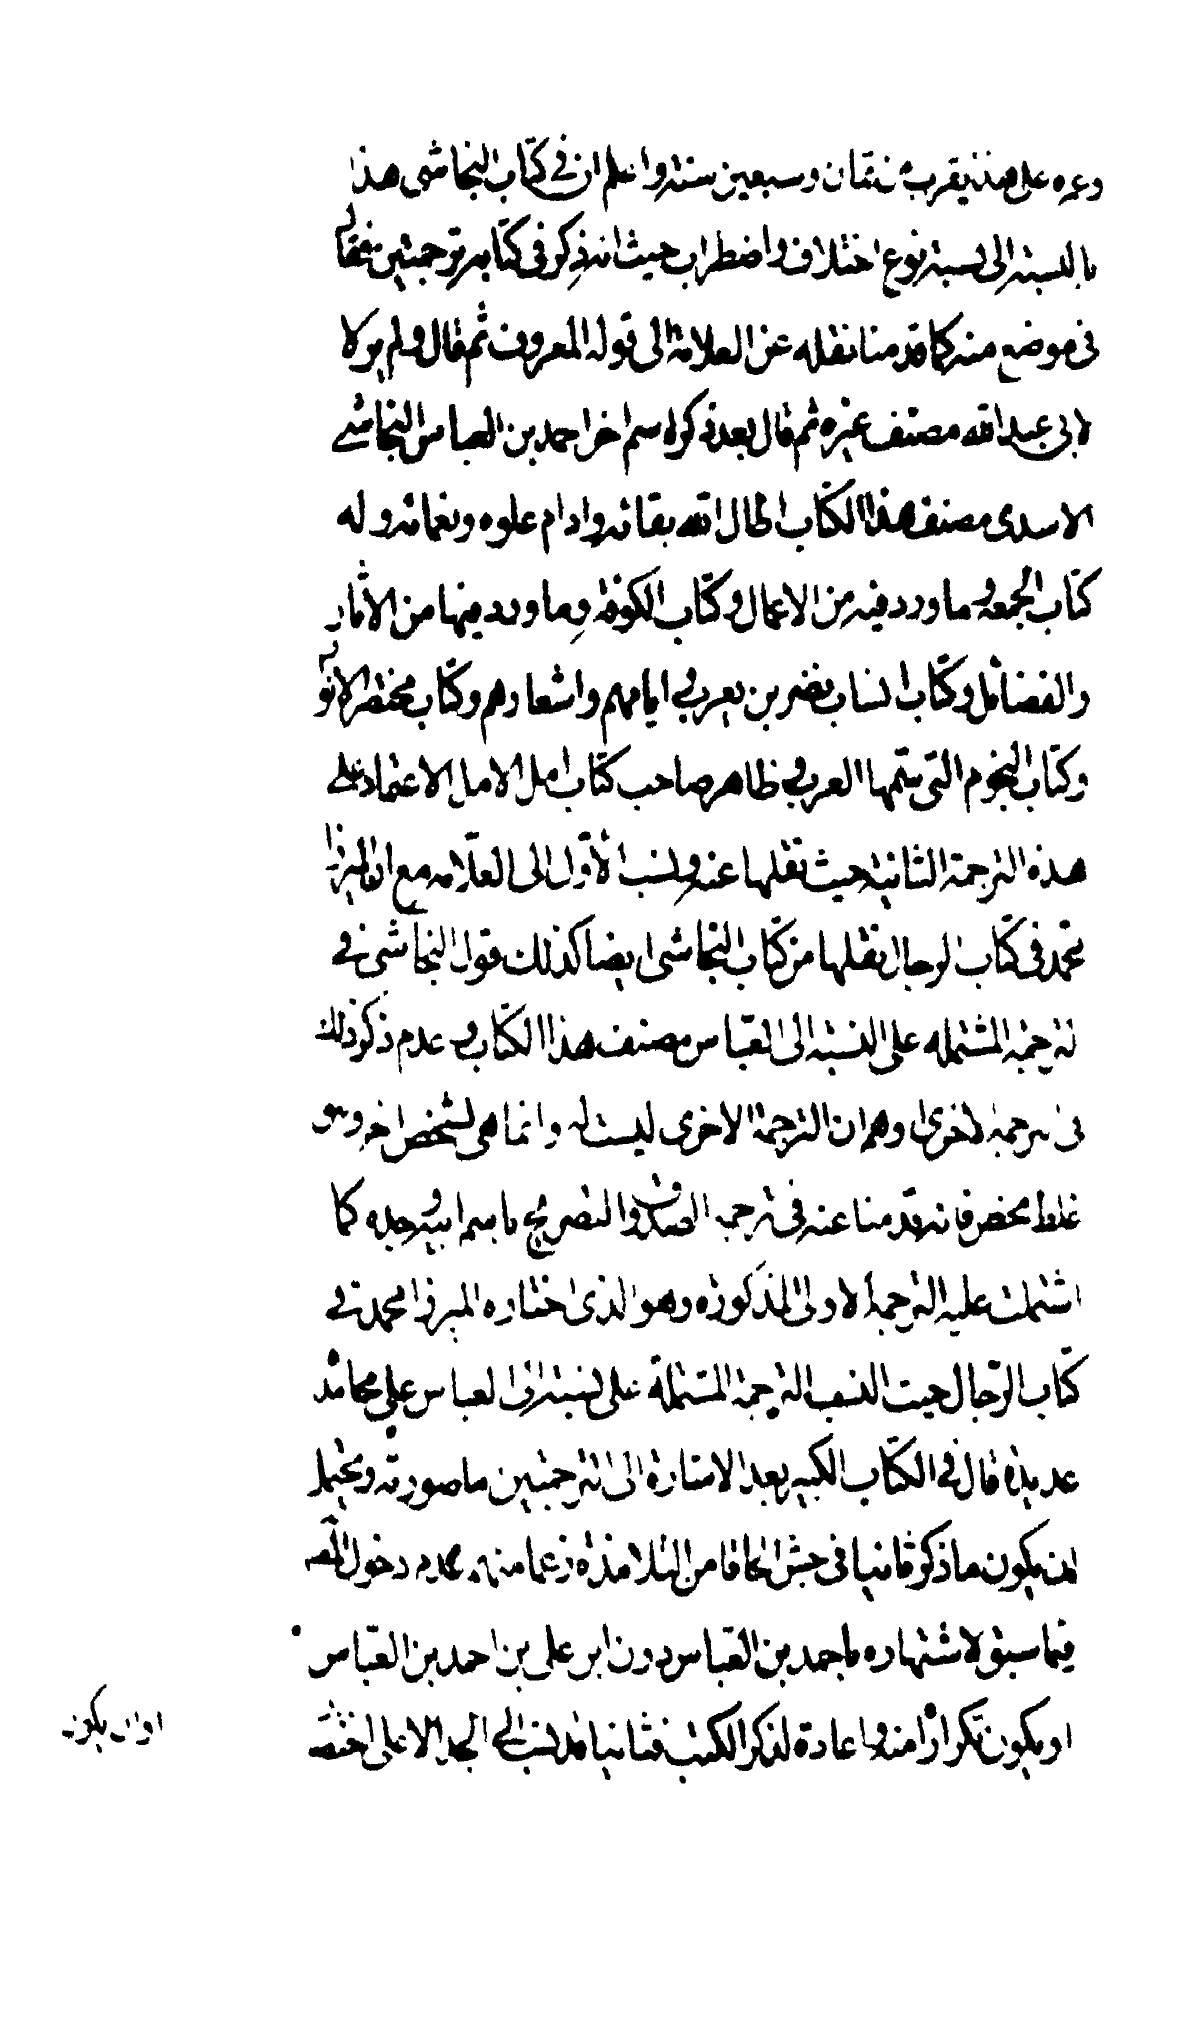 وعمره على هذا يقرب من ثمان وسبعين سنة واعلم ان في كتاب النجاشي هذا
بالنسبة الى نسبه نوع اختلاف واضطراب حيث انه ذكر في كتابه ترجمتين فقال
في موضع منه كما قدمنا نقله عن العلامة الى قوله المعروف ثم قال ولم ير كا
لابي عبد الله مصنف غيره ثم قال بعد ذكر له اسم اخر احمد بن العباس النجاشي
الاسدى مصنف هذا الكتاب اطال الله بقائه وادام علوه ونعمائه وله
كتاب الجمعة وما ورد فيه من الاعمال وكتاب الكوفة وما ورد فيها من الاثار
والفضائل وكتاب انساب نضر بن يعرب وايامهم واشعارهم وكتاب مختصر الانوآ
وكتاب النجوم التى سمتها العرب وظاهر صاحب كتاب امل الامل الاعتماد على
هذه الترجمة الثانية حيث نقلها عنه ونسب الأول الى العلّامه مع ان الميرزا
محمد في كتاب الرجال نقلها من كتاب النجاشى ايضا كذلك فقول النجاشى في
ترجمة المشتمله على النسبة الى العباس مصنف هذا الكتاب وعدم ذكر ذلك
في ترجمة الاخرى اوهم ان الترجمة الاخرى ليست له وانما هي لشخص اخر وهو
غلط محض فانه قدمنا عنه في ترجمة الصدوق والتصريح باسم ابيه وجده كما
اشتملت عليه الترجمة الاولى المذكورة وهو الذى اختاره الميرزا محمد في
كتاب الرّجال حيث النسب الترجمة المشتملة على نسبته الى العباس على محامد
عديدة قال في الكتاب الكبير بعد الاشارة الى الترجمتين ما صورته ويحتمل
ان يكون ما ذكر ثانيا في جش الحاقا من التلامذة زعما منهم عدم دخول المصه
فيما سبق لاشتهاره باحمد بن العباس دون ابن على بن احمد بن العباس
او يكون تكرارا منه واعادة لذكر الكتب فثانيا قد نسب الى الجد الاعلى اختصا
او ان يكون